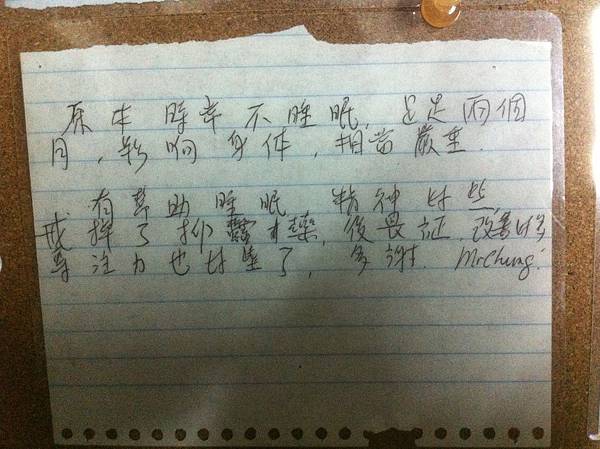 原本時常不睡眠，足足兩個
月，影响身体，相當嚴重.
有幫助睡眠 精神好些
戒掉了抑鬱 藥，後 証 改善好多
專注力也好 了，多謝. Mr Chung.